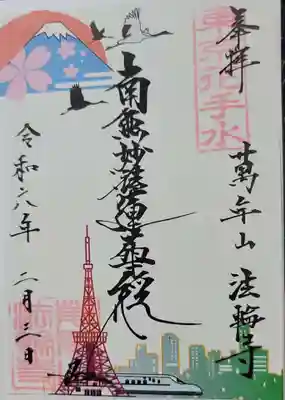 奉拝
東京花手水
萬年山 法輪寺
南無妙法蓮華経
令和八年 二月三日